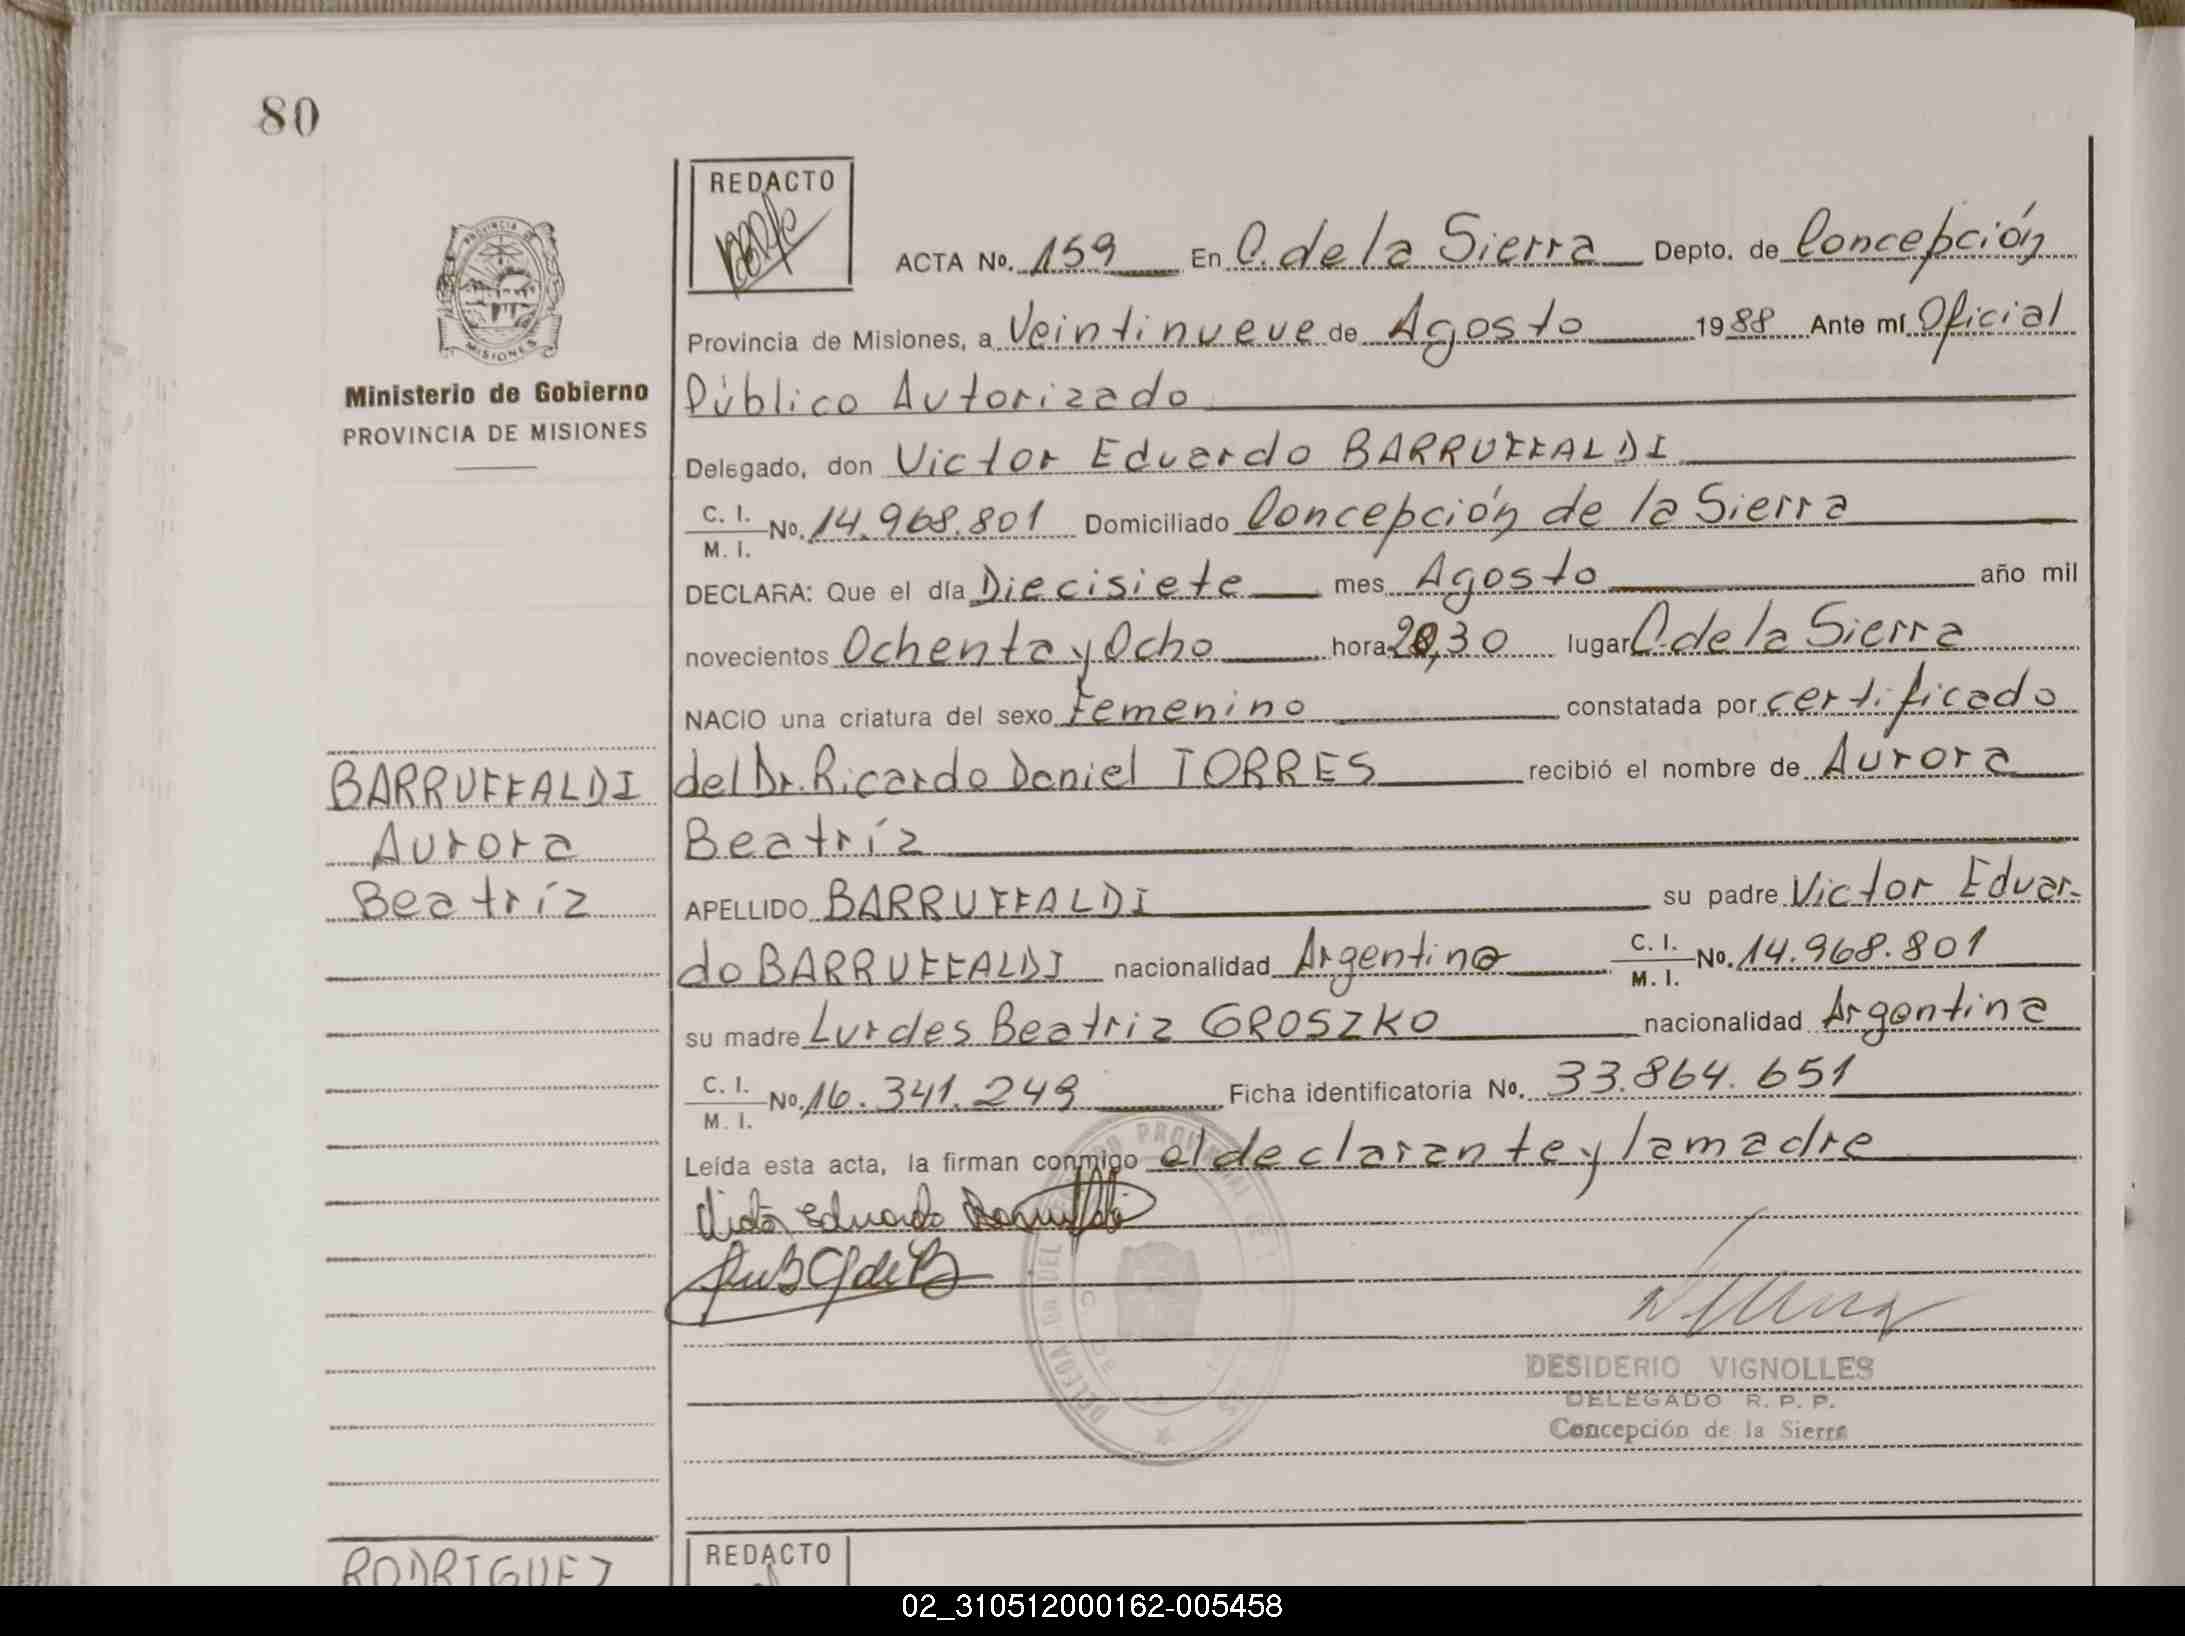 80
REDACTO
PROVINCIA DE
MISIONES
Ministerio de Gobierno
PROVINCIA DE MISIONES
ACTA No. 159 En C. de la Sierra Depto. de Concepción
Provincia de Misiones, a Veintinueve de Agosto 1988 Ante mí Oficial
Público Autorizado
Delegado, don Victor Eduardo BARRUFFALDI
C. I. M. I. No. 14.968.801 Domiciliado Concepción de la Sierra
DECLARA: Que el día Diecisiete mes Agosto año mil
novecientos Ochenta y Ocho hora 20,30 lugar C. de la Sierra
NACIO una criatura del sexo Femenino constatada por certificado
BARRUFFALDI del Dr. Ricardo Daniel TORRES recibió el nombre de Aurora
Aurora Beatríz
Beatríz APELLIDO BARRUFFALDI su padre Victor Eduar-
do BARRUFFALDI nacionalidad Argentino C. I. M. I. No. 14.968.801
su madre Lurdes Beatriz GROSZKO nacionalidad Argentina
C. I. M. I. No. 16.341.249 Ficha identificatoria No. 33.864.651
Leída esta acta, la firman conmigo el declarante y la madre
Victor Eduardo Barruffaldi
DESIDERIO VIGNOLLES
DELEGADO R. P. P.
Concepción de la Sierra
RODRIGUEZ
REDACTO
02_310512000162-005458